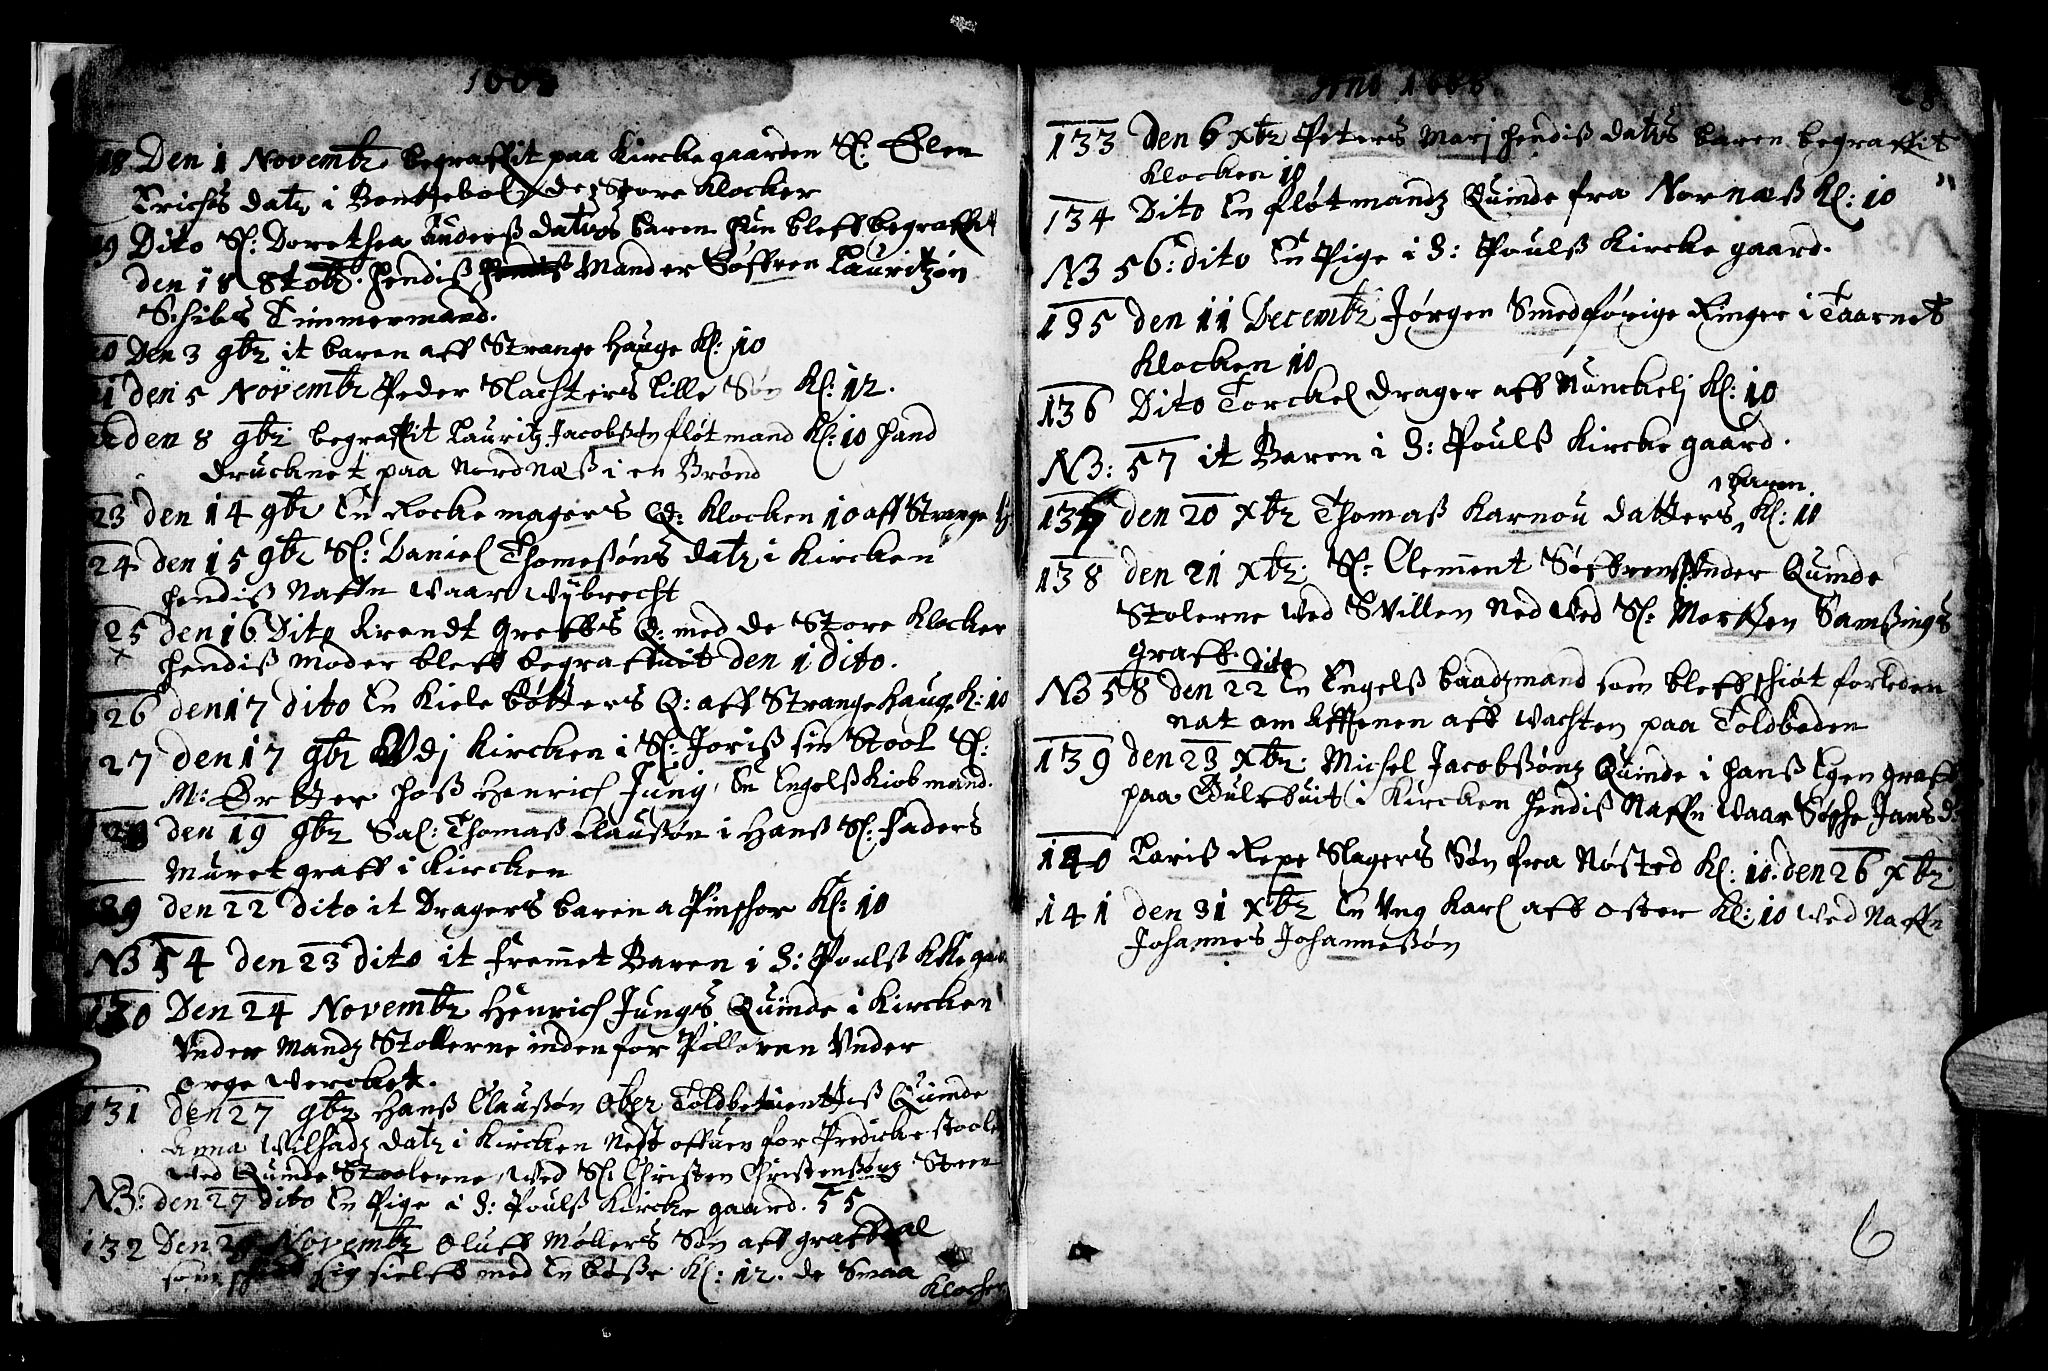 1668
118 Den 1 Novembr begraffit paa Kircke gaarden Sl: Elen
Erichs datr i Bentzebol, de Store Klocker
119 Dito Sl: Dorethea Anderß datters baren hun bleff begraffit
den 18 8tobr. hendiß Mand er Söffren Lauritzøn
Schibs Timmermand.
120 Den 3 9br it baren aff Strange hauge Kl: 10
121 den 5 Novembr Peder Slachters lille Søn Kl: 12.
122 den 8 9br begraffit Lauritz Jacobsen fløtmand Kl: 10 hand
drucknet paa Nordnæß i en Brønd
123 den 14 9br En Rockemagers Q: Klocken 10 aff Strange H:
124 den 15 9br Sl: Daniel Thomeßøns datr i Kircken
hendiß Naffn waar Wybrecht
125 den 16 Dito Arendt Greffs Q: med de Store Klocker
x hendiß moder bleff begraffuit den 1 dito.
126 den 17 dito En Kiele bøtters Q: aff Strange hauge K: 10
127 den 17 9br Udj Kircken i Sl: Joriß sin Stool Sl:
M: Ørtter hoß Henrich Jung, En Engelß Kiobmand.
128 den 19 9br Sal: Thomaß Claußøn i Hanß Sl: Faders
Muret graff i Kircken
129 den 22 dito it Dragers baren a Pinshor Kl: 10
N3 54 den 23 dito it fremmet Baren i S: Poulß KKe gaar
130 Den 24 Novembr Henrich Jungs Quinde i Kircken
Vnder Mandz Stollerne inden for Pilleren Vnder
orge wercket.
131 den 27 9br Hanß Claußøn Ober Toldbetienttiß Quinde
Anna Wilhadz datr i Kircken Nest offuen for Predicke stoolen
wed Quinde Stoolerne, wed Sl: Christen Christenßønz Steen
N3: den 27 dito En Pige i S: Poulß Kircke gaard. 55
132 Den Novembr Oluff Møllers Søn aff graffdal
som sig sielff med En bøße Kl: 12. de Smaa
Klocker
Anno 1668 28
133 den 6 Xbr Peters Marj hendiß datters baren begraffit
Klocken 10
134 Dito En fløtmandz Quinde fra Nornæß Kl: 10
N3 56: dito En Pige i S: Poulß Kircke gaard.
135 den 11 Decembr Jørgen Smed förige Ringer i Taarnet
Klocken 10
136 Dito Torckel Drager aff Nunckelj Kl: 10
N3: 57 it Baren i S: Poulß Kircke gaard.
1 baren
137 den 20 Xbr Thomaß Karnou datters Kl: 10
138 den 21 Xbr: Sl: Clement Søffrens Under Quinde
Stolerne wed Svillen Ned wed Sl: Morten Samßings
graff.
N3 58 den 22 dito En Engelß baadzmand som bleff schiøt forleden
nat om Afftenen aff wachten paa Toldboden
139 den 23 Xbr: Michel Jacobßønz Quinde i hanß Egen graff
paa Gulfbuit i Kircken hendiß Naffn waar Søphe Jans d:
140 Lariß Repe Slagers Søn fra Nøsted Kl: 10. den 26 Xbr
141 den 31 Xbr En Ung Karl aff oster Kl: 10 wed Naffn
Johannes Johanneßøn
6